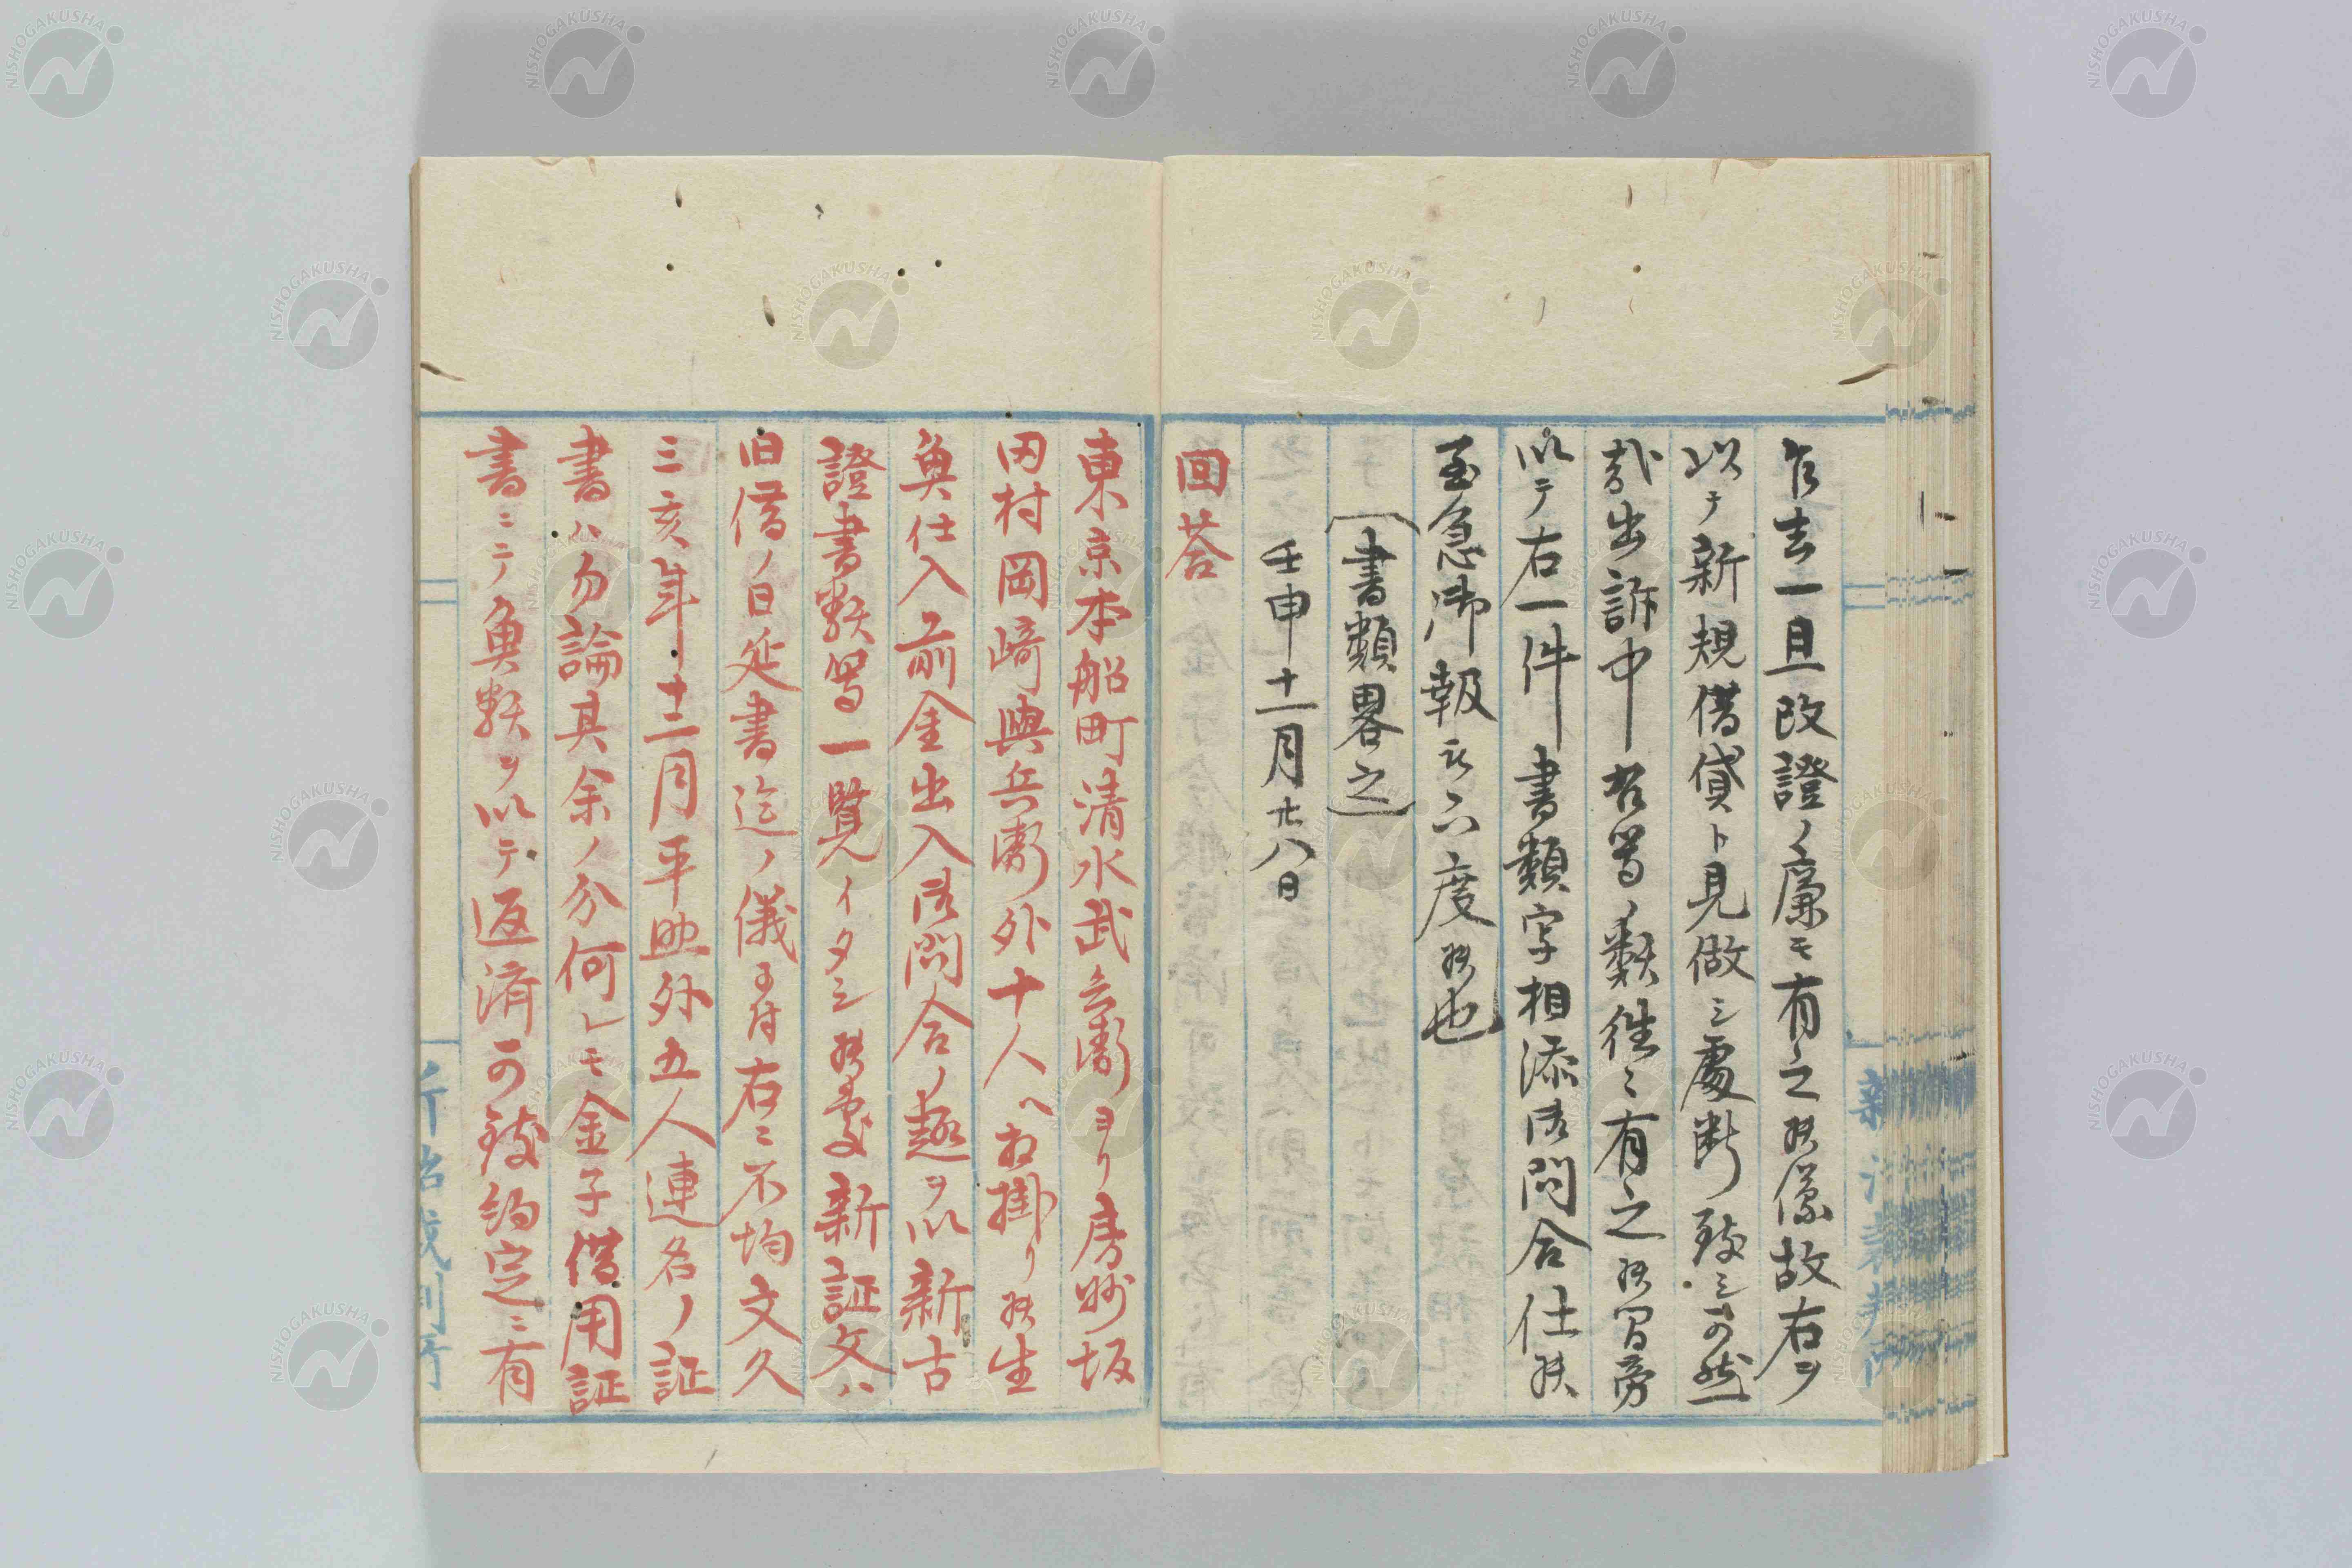 乍去一旦改證ノ廉モ有之候儀故右ヲ
以テ新規借貸ト見做シ處断致シ可然
哉出訴中右等ノ類往々有之候間旁
以テ右一件書類写相添御問合仕候
至急御報有之度候也
〔書類畧之〕
壬申十一月廿八日
回荅
東京本船町清水武兵衛ヨリ房州坂
田村岡崎與兵衛外十人ヘ相掛リ候生
魚仕入前金出入御問合ノ趣ヲ以新古
證書数等一覧イタシ候處新証文ハ
旧借ノ日延書迄ノ儀ニ付右ニ不均文久
三亥年十二月平助外五人連名ノ証
書ハ勿論其余ノ分何レモ金子借用証
書ニテ魚数ヲ以テ返済可致約定ニ有
新治裁判所
NISHOGAKUSHA